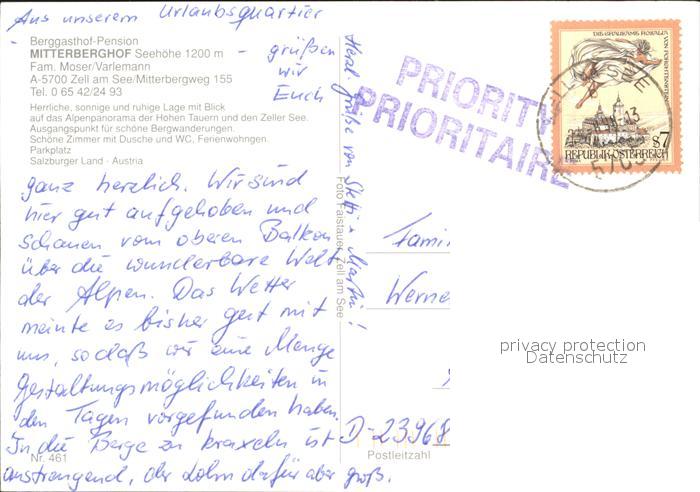 Aus unserem Urlaubsquartier
Berggasthof-Pension
MITTERBERGHOF Seehöhe 1200 m
Fam. Moser/Varlemann
A-5700 Zell am See/Mitterbergweg 155
Tel. 0 65 42/24 93
Herrliche, sonnige und ruhige Lage mit Blick
auf das Alpenpanorama der Hohen Tauern und den Zeller See.
Ausgangspunkt für schöne Bergwanderungen.
Schöne Zimmer mit Dusche und WC, Ferienwohnungen.
Parkplatz
Salzburger Land · Austria
- grüßen
wir
Euch
ganz herzlich. Wir sind
hier gut aufgehoben und
schauen vom oberen Balkon
über die wunderbare Welt
der Alpen. Das Wetter
meinte es bisher gut mit
uns, sodaß wir eine Menge
Gestaltungsmöglichkeiten in
den Tagen vorgefunden haben.
In die Berge zu kraxeln ist
anstrengend, der Lohn dafür aber groß.
Nr. 461
Herzl. Grüße von Steffi u. Martin!
Foto Faistauer, Zell am See
PRIORITY
PRIORITAIRE
DIE GRAUSAME ROSALIA VON FORCHTENSTEIN
S7
REPUBLIK ÖSTERREICH
ZELL AM SEE
5700
Fami
Werne
D-23968
Postleitzahl
privacy protection
Datenschutz